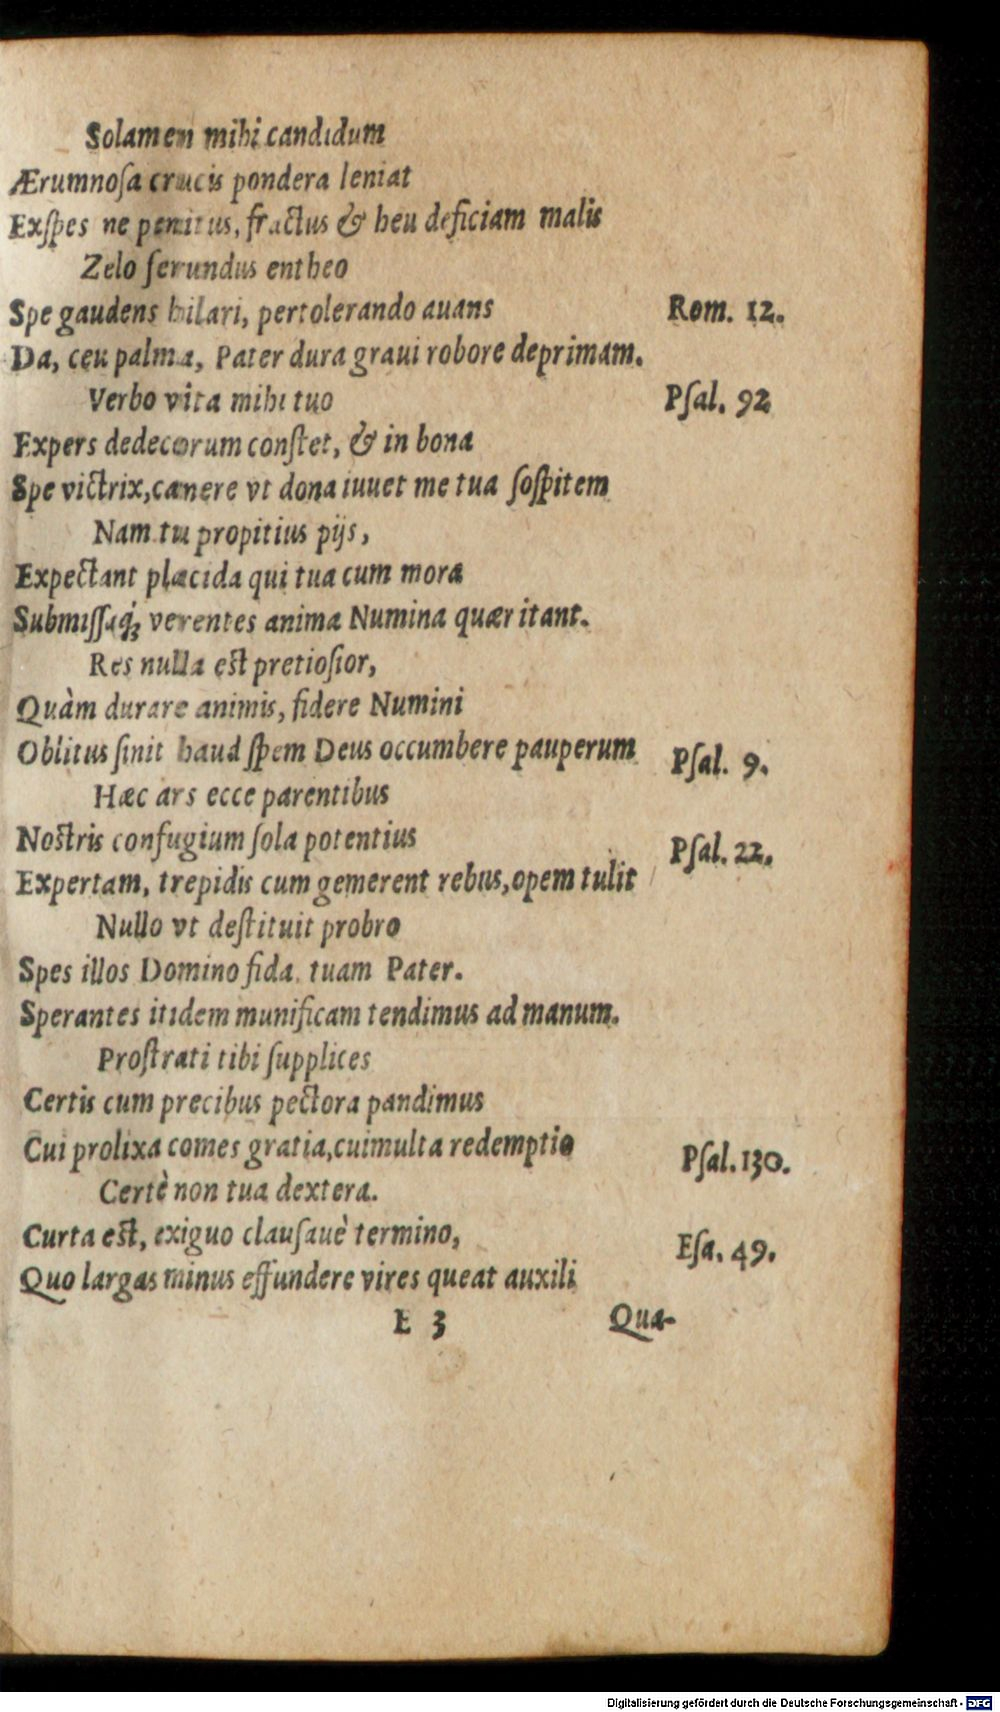 Solamen mihi candidum
Ærumnoſa crucis pondera leniat
Exſpes ne penitus, fractus & heu deficiam malis
Zelo ferundus entheo
Spe gaudens hilari, pertolerando auans
Rom. 12.
Da, ceu palma, Pater dura graui robore deprimam.
Verbo vita mihi tuo
Pſal. 92
Expers dedecorum conſtet, & in bona
Spe victrix, canere vt dona iuuet me tua ſoſpitem
Nam tu propitius pijs,
Expectant placida qui tua cum mora
Submiſſaq́; verentes anima Numina quæritant.
Res nulla est pretioſior,
Quàm durare animis, fidere Numini
Oblitus ſinit haud ſpem Deus occumbere pauperum
Pſal. 9.
Hæc ars ecce parentibus
Nostris confugium ſola potentius
Pſal. 22.
Expertam, trepidis cum gemerent rebus, opem tulit
Nullo vt deſtituit probro
Spes illos Domino fida. tuam Pater.
Sperantes itidem munificam tendimus ad manum.
Proſtrati tibi ſupplices
Certis cum precibus pectora pandimus
Cui prolixa comes gratia, cui multa redemptio
Pſal. 130.
Certè non tua dextera.
Curta est, exiguo clauſauè termino,
Eſa. 49.
Quo largas minus effundere vires queat auxili
E 3
Qua-
Digitalisierung gefördert durch die Deutsche Forschungsgemeinschaft - DFG